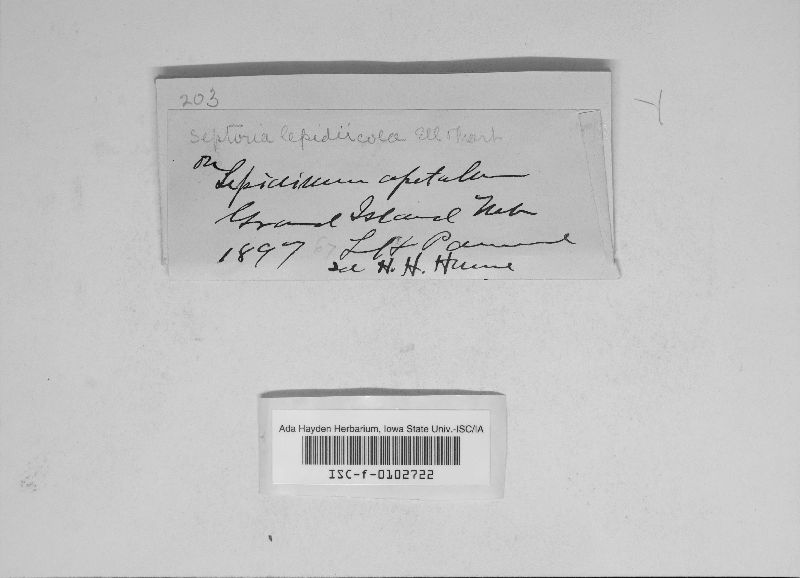 203
Septoria lepidiicola Ell & Mart
on
Lepidium apetalum
Grand Island Neb
1897 L H Pammel
H. H. Hume
Ada Hayden Herbarium, Iowa State Univ.-ISC/IA
ISC-f-0102722